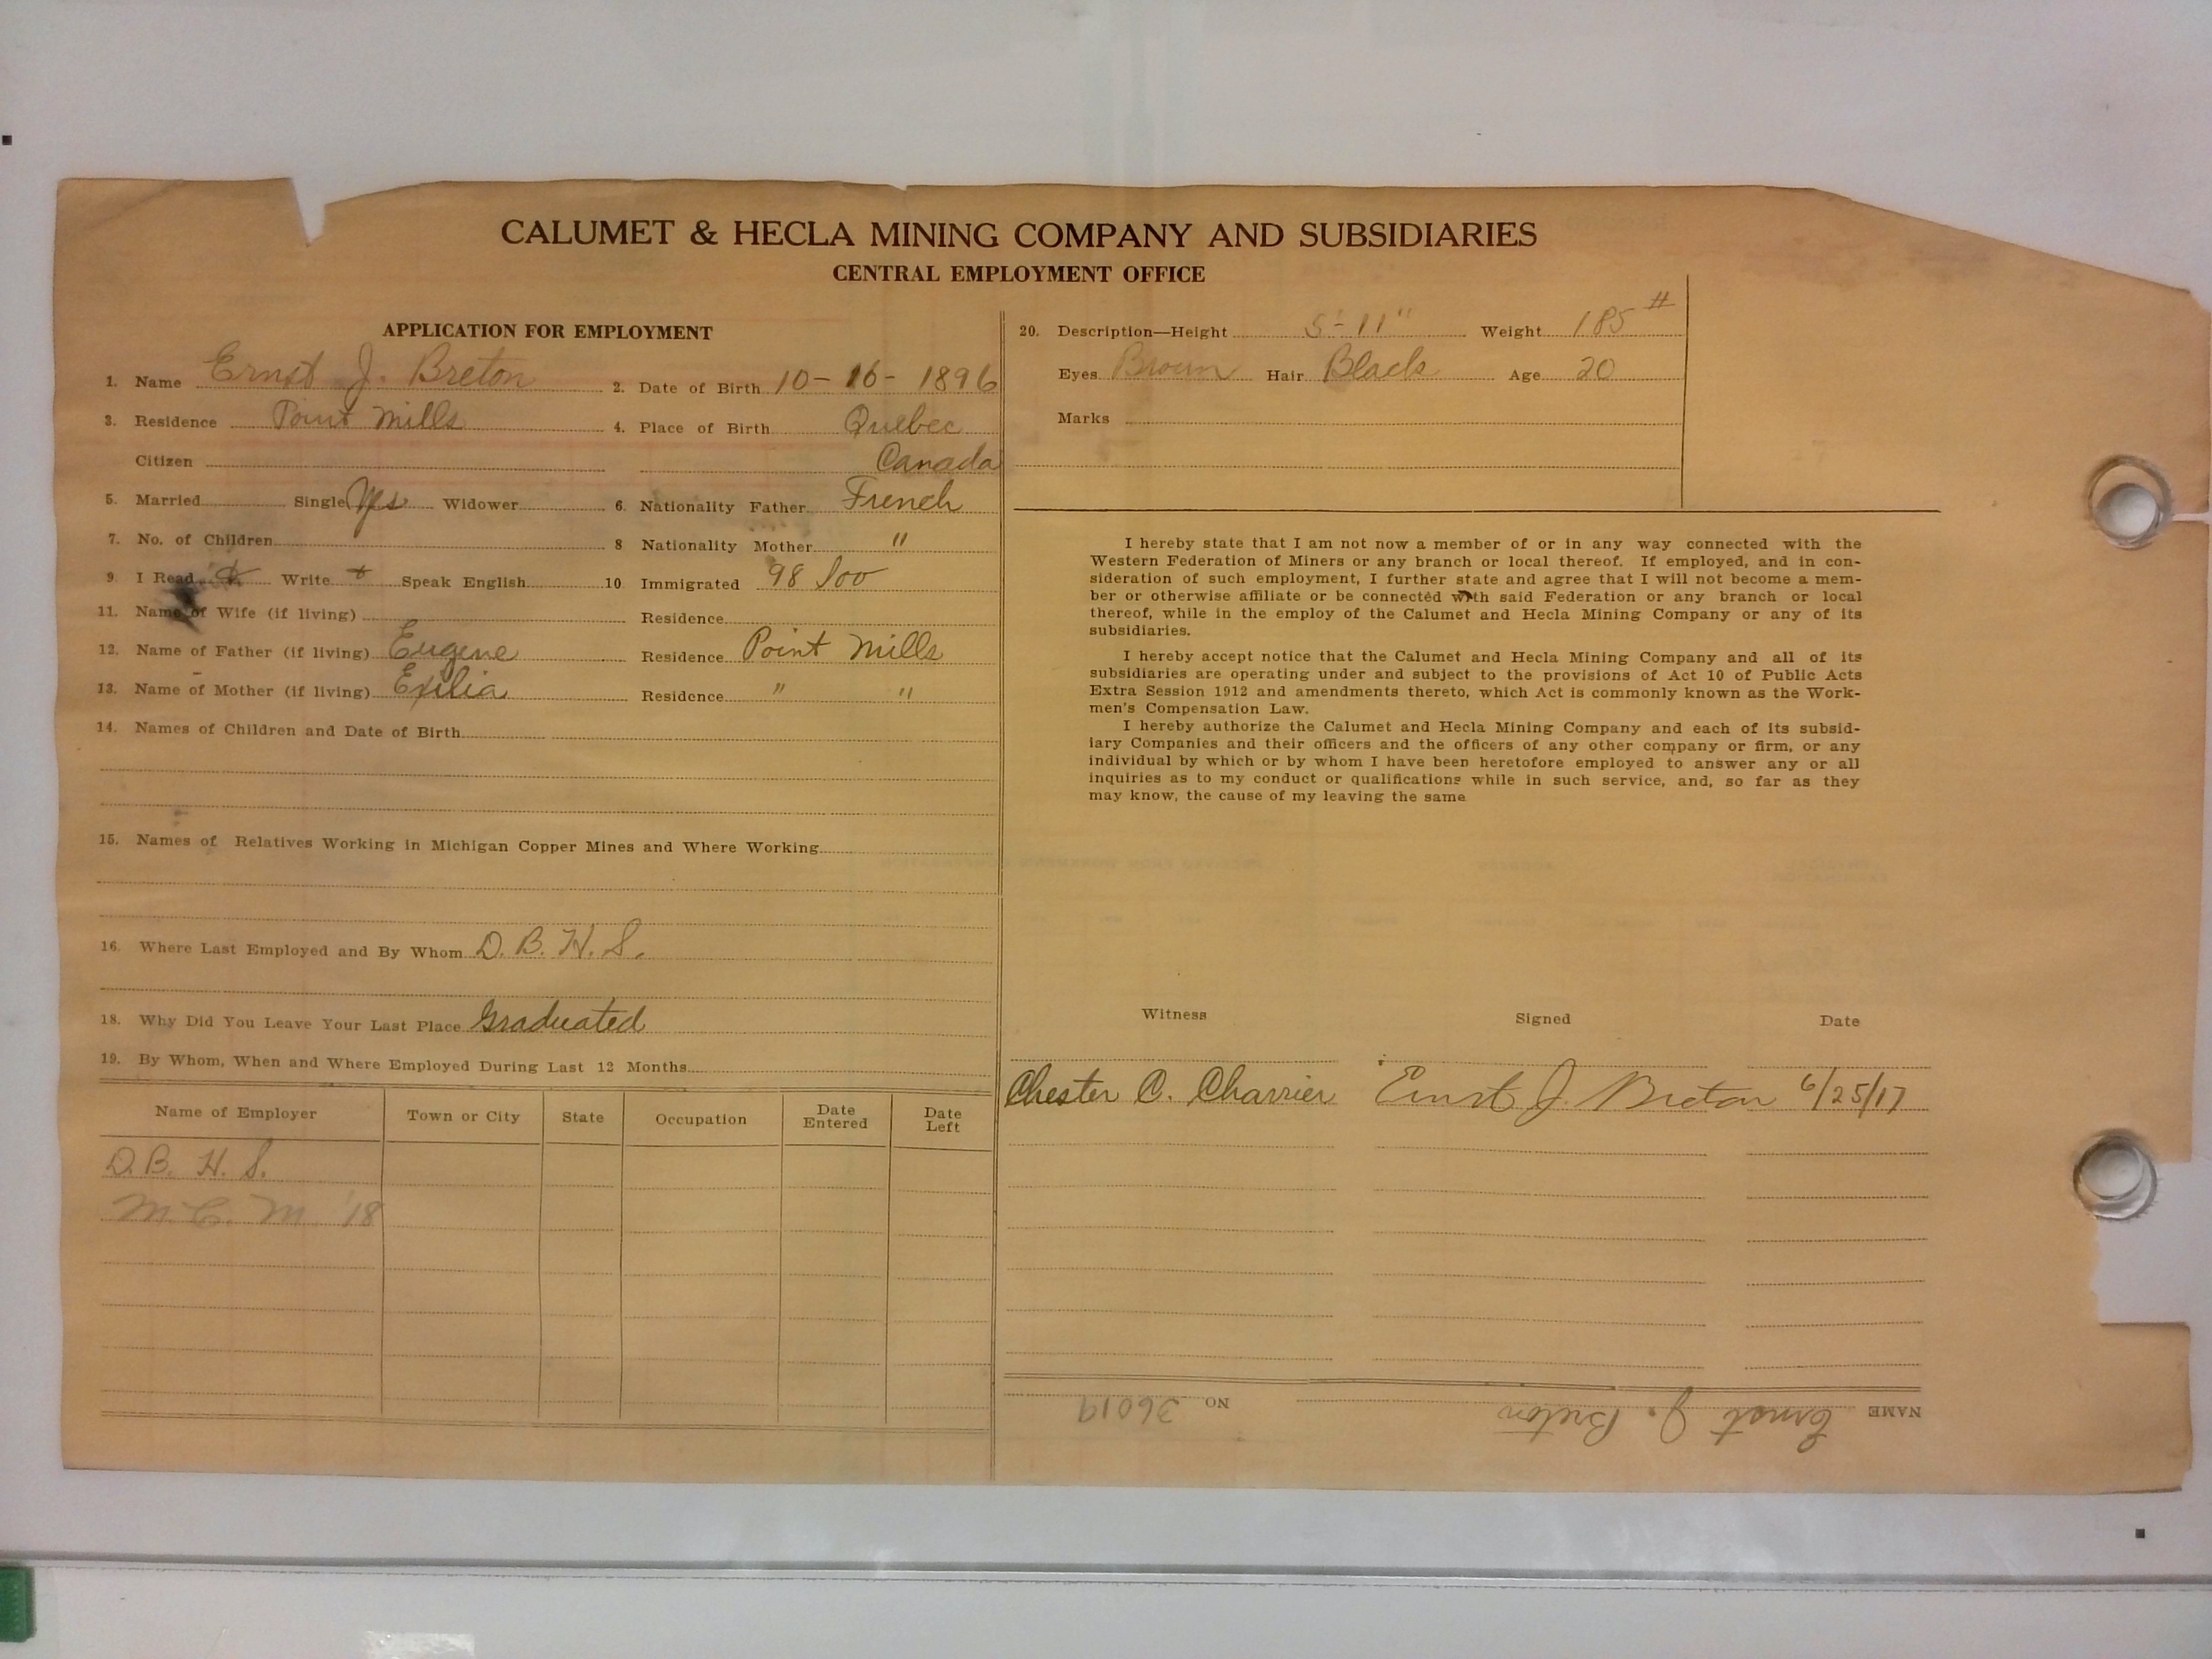 CALUMET & HECLA MINING COMPANY AND SUBSIDIARIES
CENTRAL EMPLOYMENT OFFICE
APPLICATION FOR EMPLOYMENT
1. Name Ernst J. Breton 2. Date of Birth 10-16-1896
3. Residence Point Mills 4. Place of Birth Quebec
Citizen Canada
5. Married Single Yes Widower 6. Nationality Father French
7. No. of Children 8 Nationality Mother "
9. I Read Write Speak English 10. Immigrated 98 Soo
11. Name of Wife (if living) Residence
12. Name of Father (if living) Eugene Residence Point Mills
13. Name of Mother (if living) Exilia Residence " "
14. Names of Children and Date of Birth
15. Names of Relatives Working in Michigan Copper Mines and Where Working
16. Where Last Employed and By Whom D. B. H. S.
18. Why Did You Leave Your Last Place Graduated
19. By Whom, When and Where Employed During Last 12 Months
Name of Employer Town or City State Occupation Date Entered Date Left
D. B. H. S.
M. C. M. '18
20. Description—Height 5'-11" Weight 185 #
Eyes Brown Hair Black Age 20
Marks
I hereby state that I am not now a member of or in any way connected with the
Western Federation of Miners or any branch or local thereof. If employed, and in con-
sideration of such employment, I further state and agree that I will not become a mem-
ber or otherwise affiliate or be connected with said Federation or any branch or local
thereof, while in the employ of the Calumet and Hecla Mining Company or any of its
subsidiaries.
I hereby accept notice that the Calumet and Hecla Mining Company and all of its
subsidiaries are operating under and subject to the provisions of Act 10 of Public Acts
Extra Session 1912 and amendments thereto, which Act is commonly known as the Work-
men's Compensation Law.
I hereby authorize the Calumet and Hecla Mining Company and each of its subsid-
iary Companies and their officers and the officers of any other company or firm, or any
individual by which or by whom I have been heretofore employed to answer any or all
inquiries as to my conduct or qualifications while in such service, and, so far as they
may know, the cause of my leaving the same
Witness Signed Date
Chester C. Charrier Ernst J Breton 6/25/17
NAME Ernst J. Breton NO. 36019